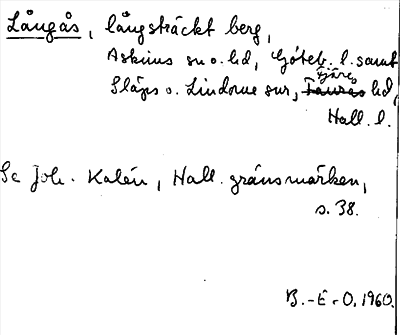 Långås, långsträckt berg,
Askims sn o. hd, Göteb. l. samt
Släps o. Lindome snr, Fjäre hd,
Hall. l.
Se Joh. Kalén, Hall. gränsmärken,
s. 38.
B.-E-O. 1960.